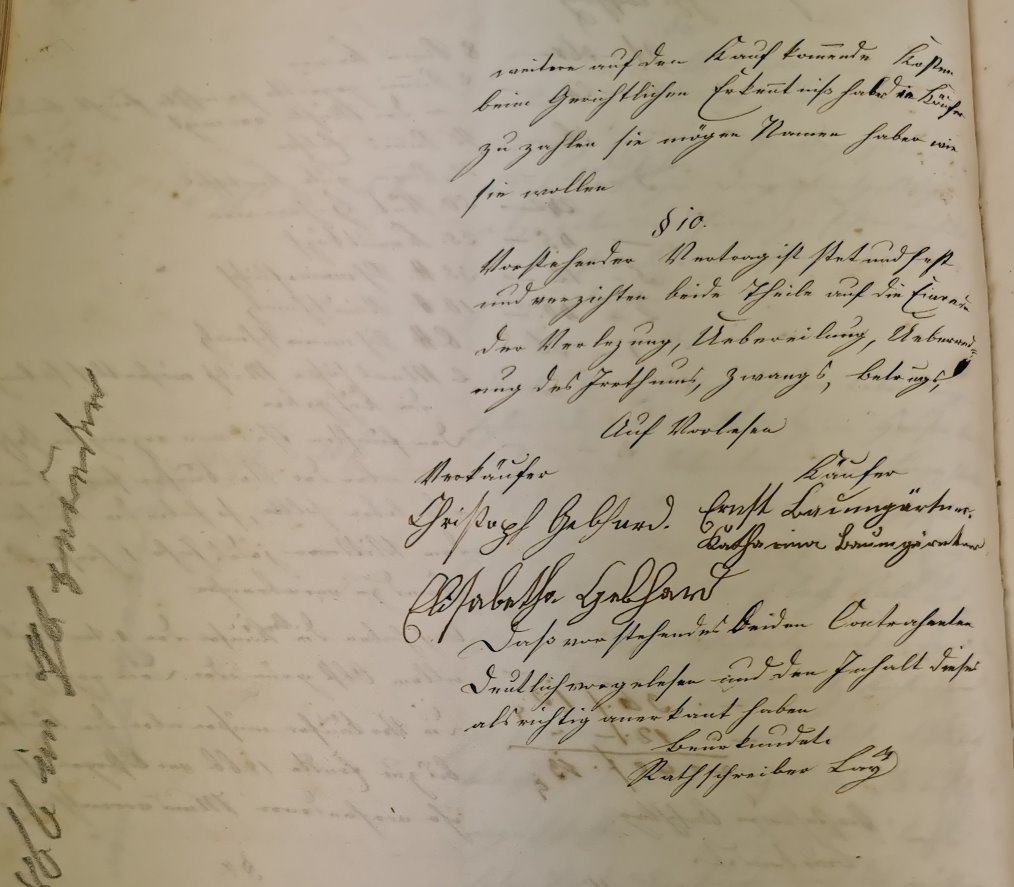 weitere auf den Kauf kom̅ende Kosten
beim Gerichtlichen Erkenntniß haben die Käufer
zu zahlen sie mögen Namen haben wie
sie wollen
§ 10.
Vorstehender Vertrag ist stet und fest
und verzichten beide Theile auf die Einrede
der Verlezung, Uebereilung, Ueberred=
ung des Irrthums, Zwangs, betrugs,
Auf Vorlesen
Verkäufer Käufer
Christoph Gebhard. Ernst Baumgärtner.
Katharina Baumgärtner
Elisabetha Gebhard
Daß vorstehendes beiden Contrahenten
deutlich vorgelesen und den Inhalt dieses
als richtig anerkant haben
beurkundet.
Rathschreiber Lay